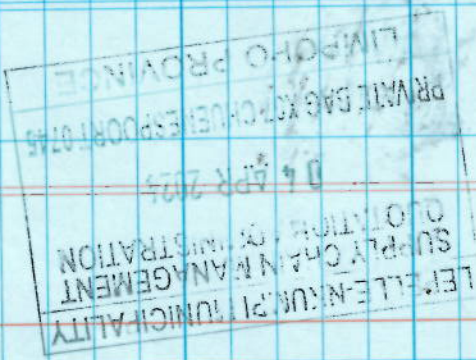 LEPELLE-NKUMPI MUNICIPALITY
SUPPLY CHAIN MANAGEMENT
QUOTATION ADMINISTRATION
04 APR 2024
PRIVATE BAG CHUENESPOORT 0745
LIMPOPO PROVINCE